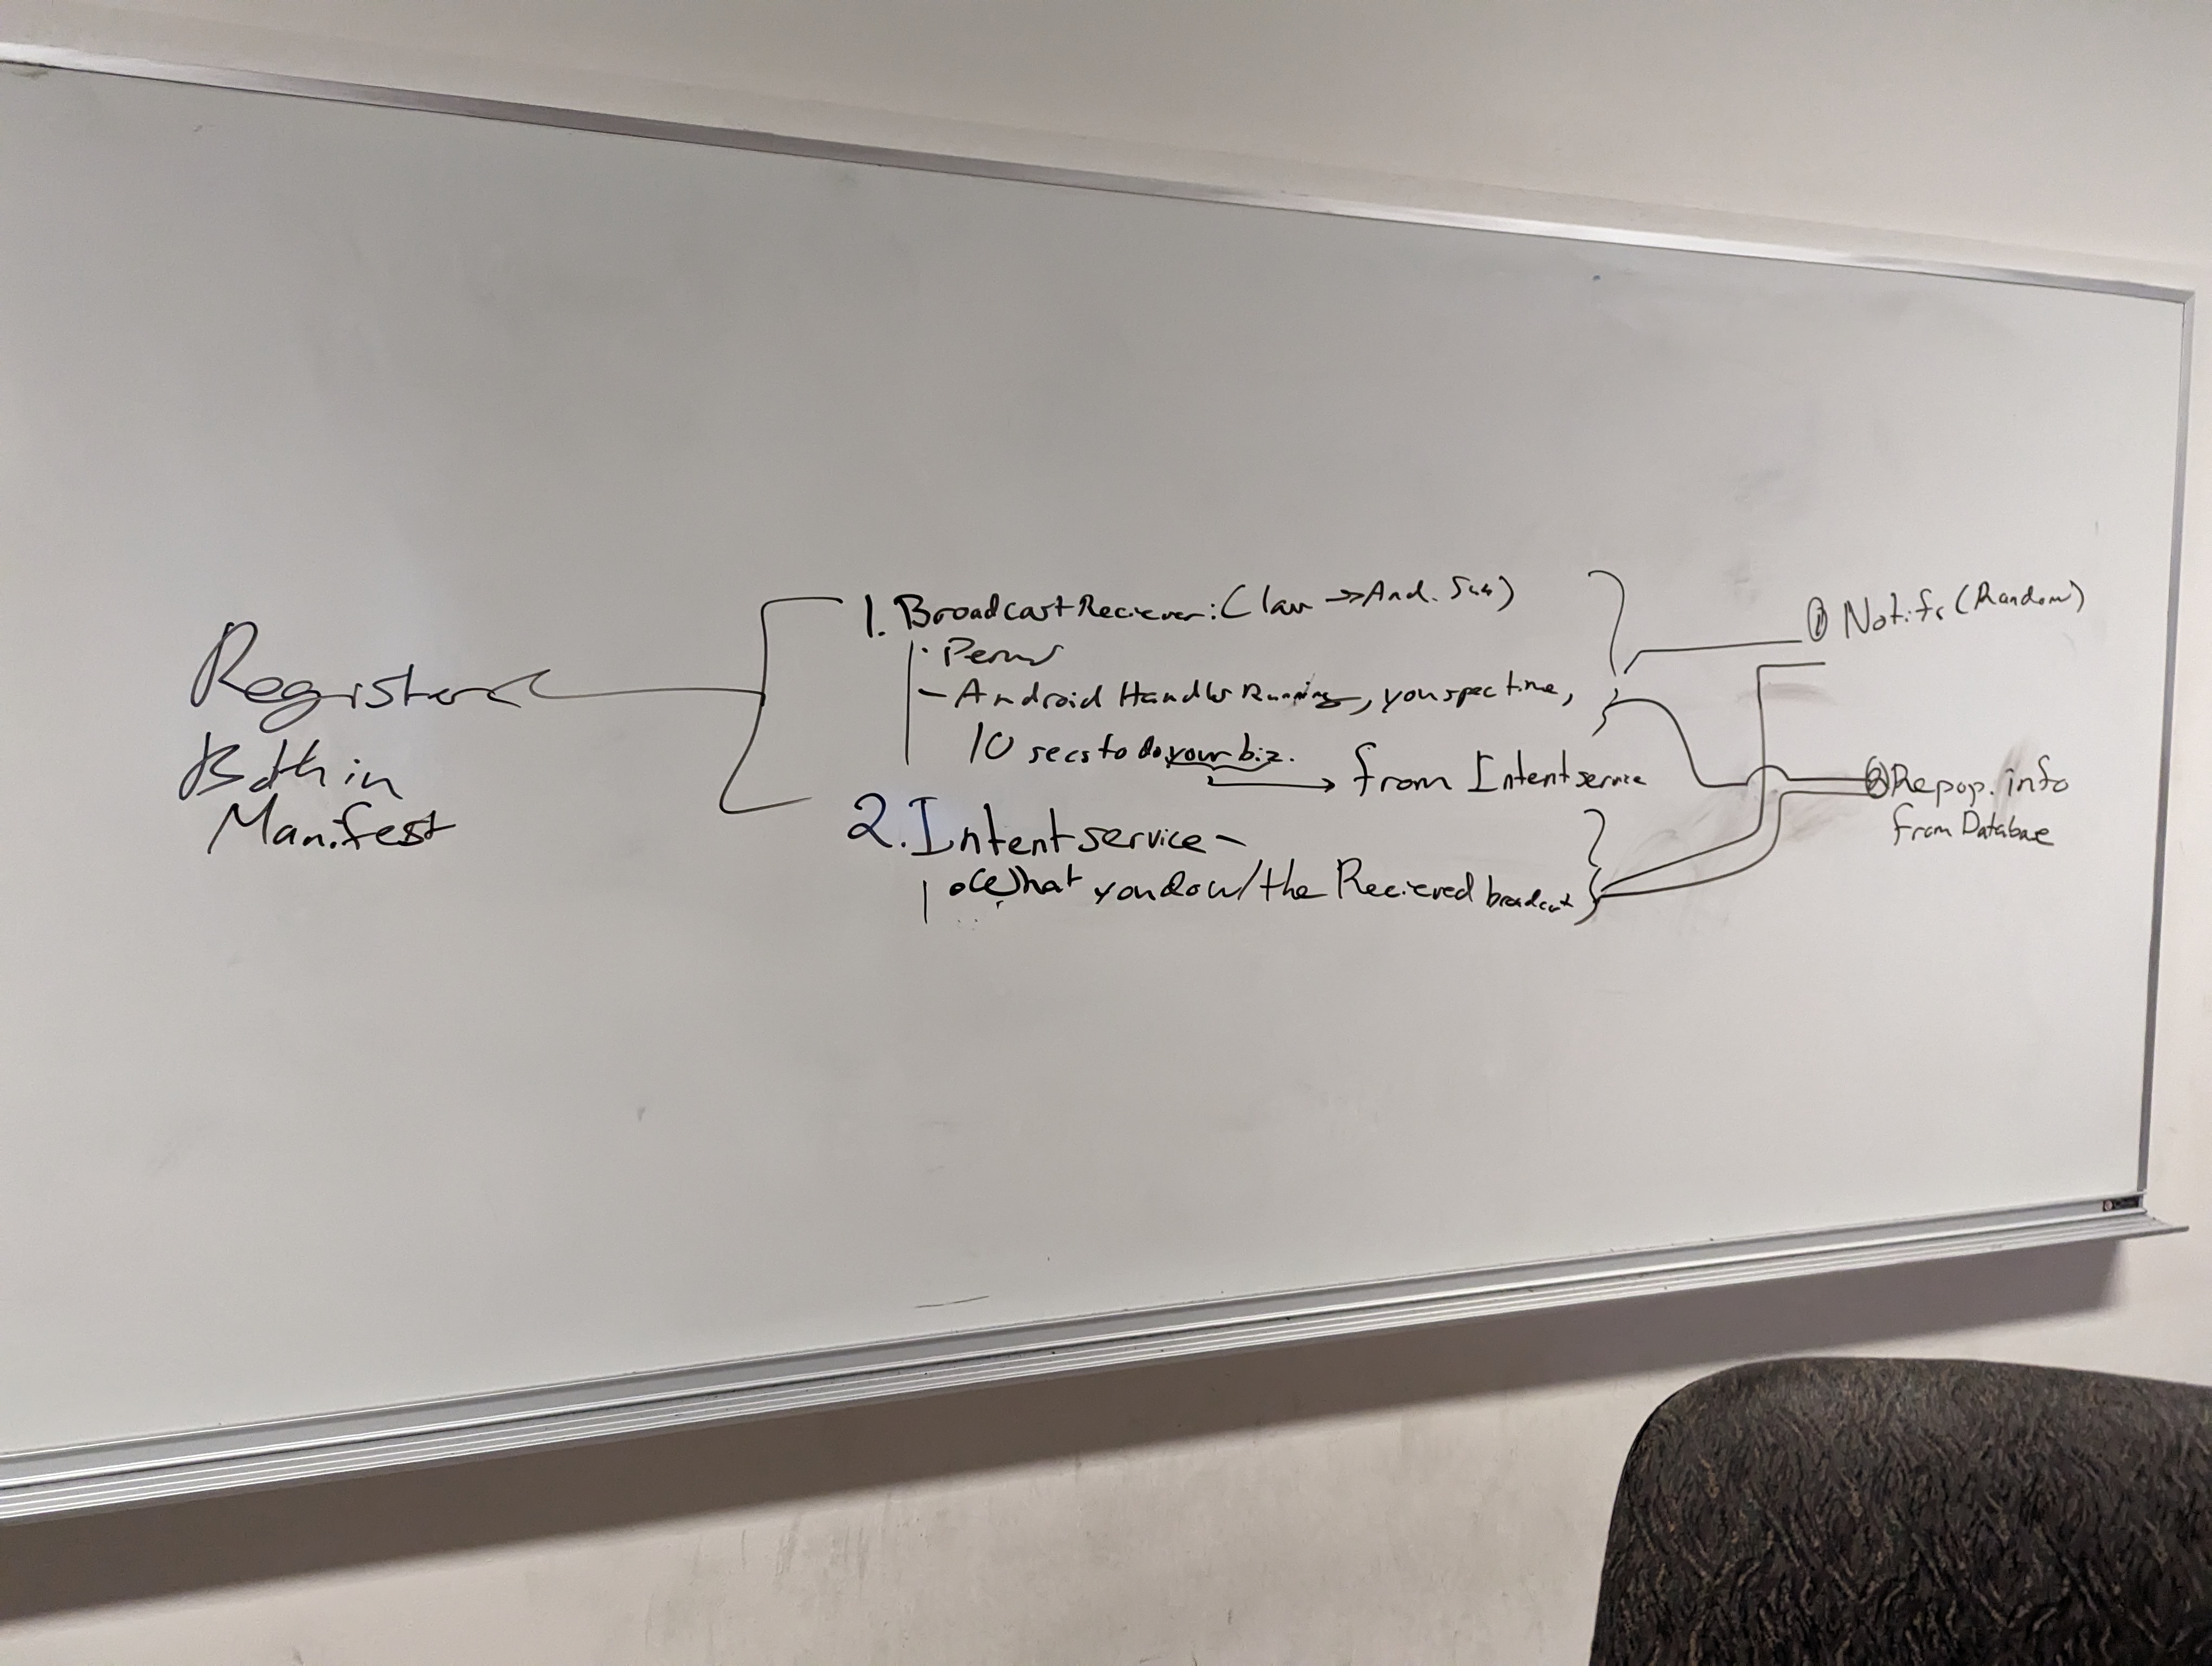 Register
Both in
Manifest
1. BroadcastReciever: (
· Perms
- Android Handles Running, you spec time,
10 secs to do your biz.
→ from Intentservice
2. Intentservice -
What you do w/ the Recieved broadcast
① Notifs (Random)
② Repop. info
from Database